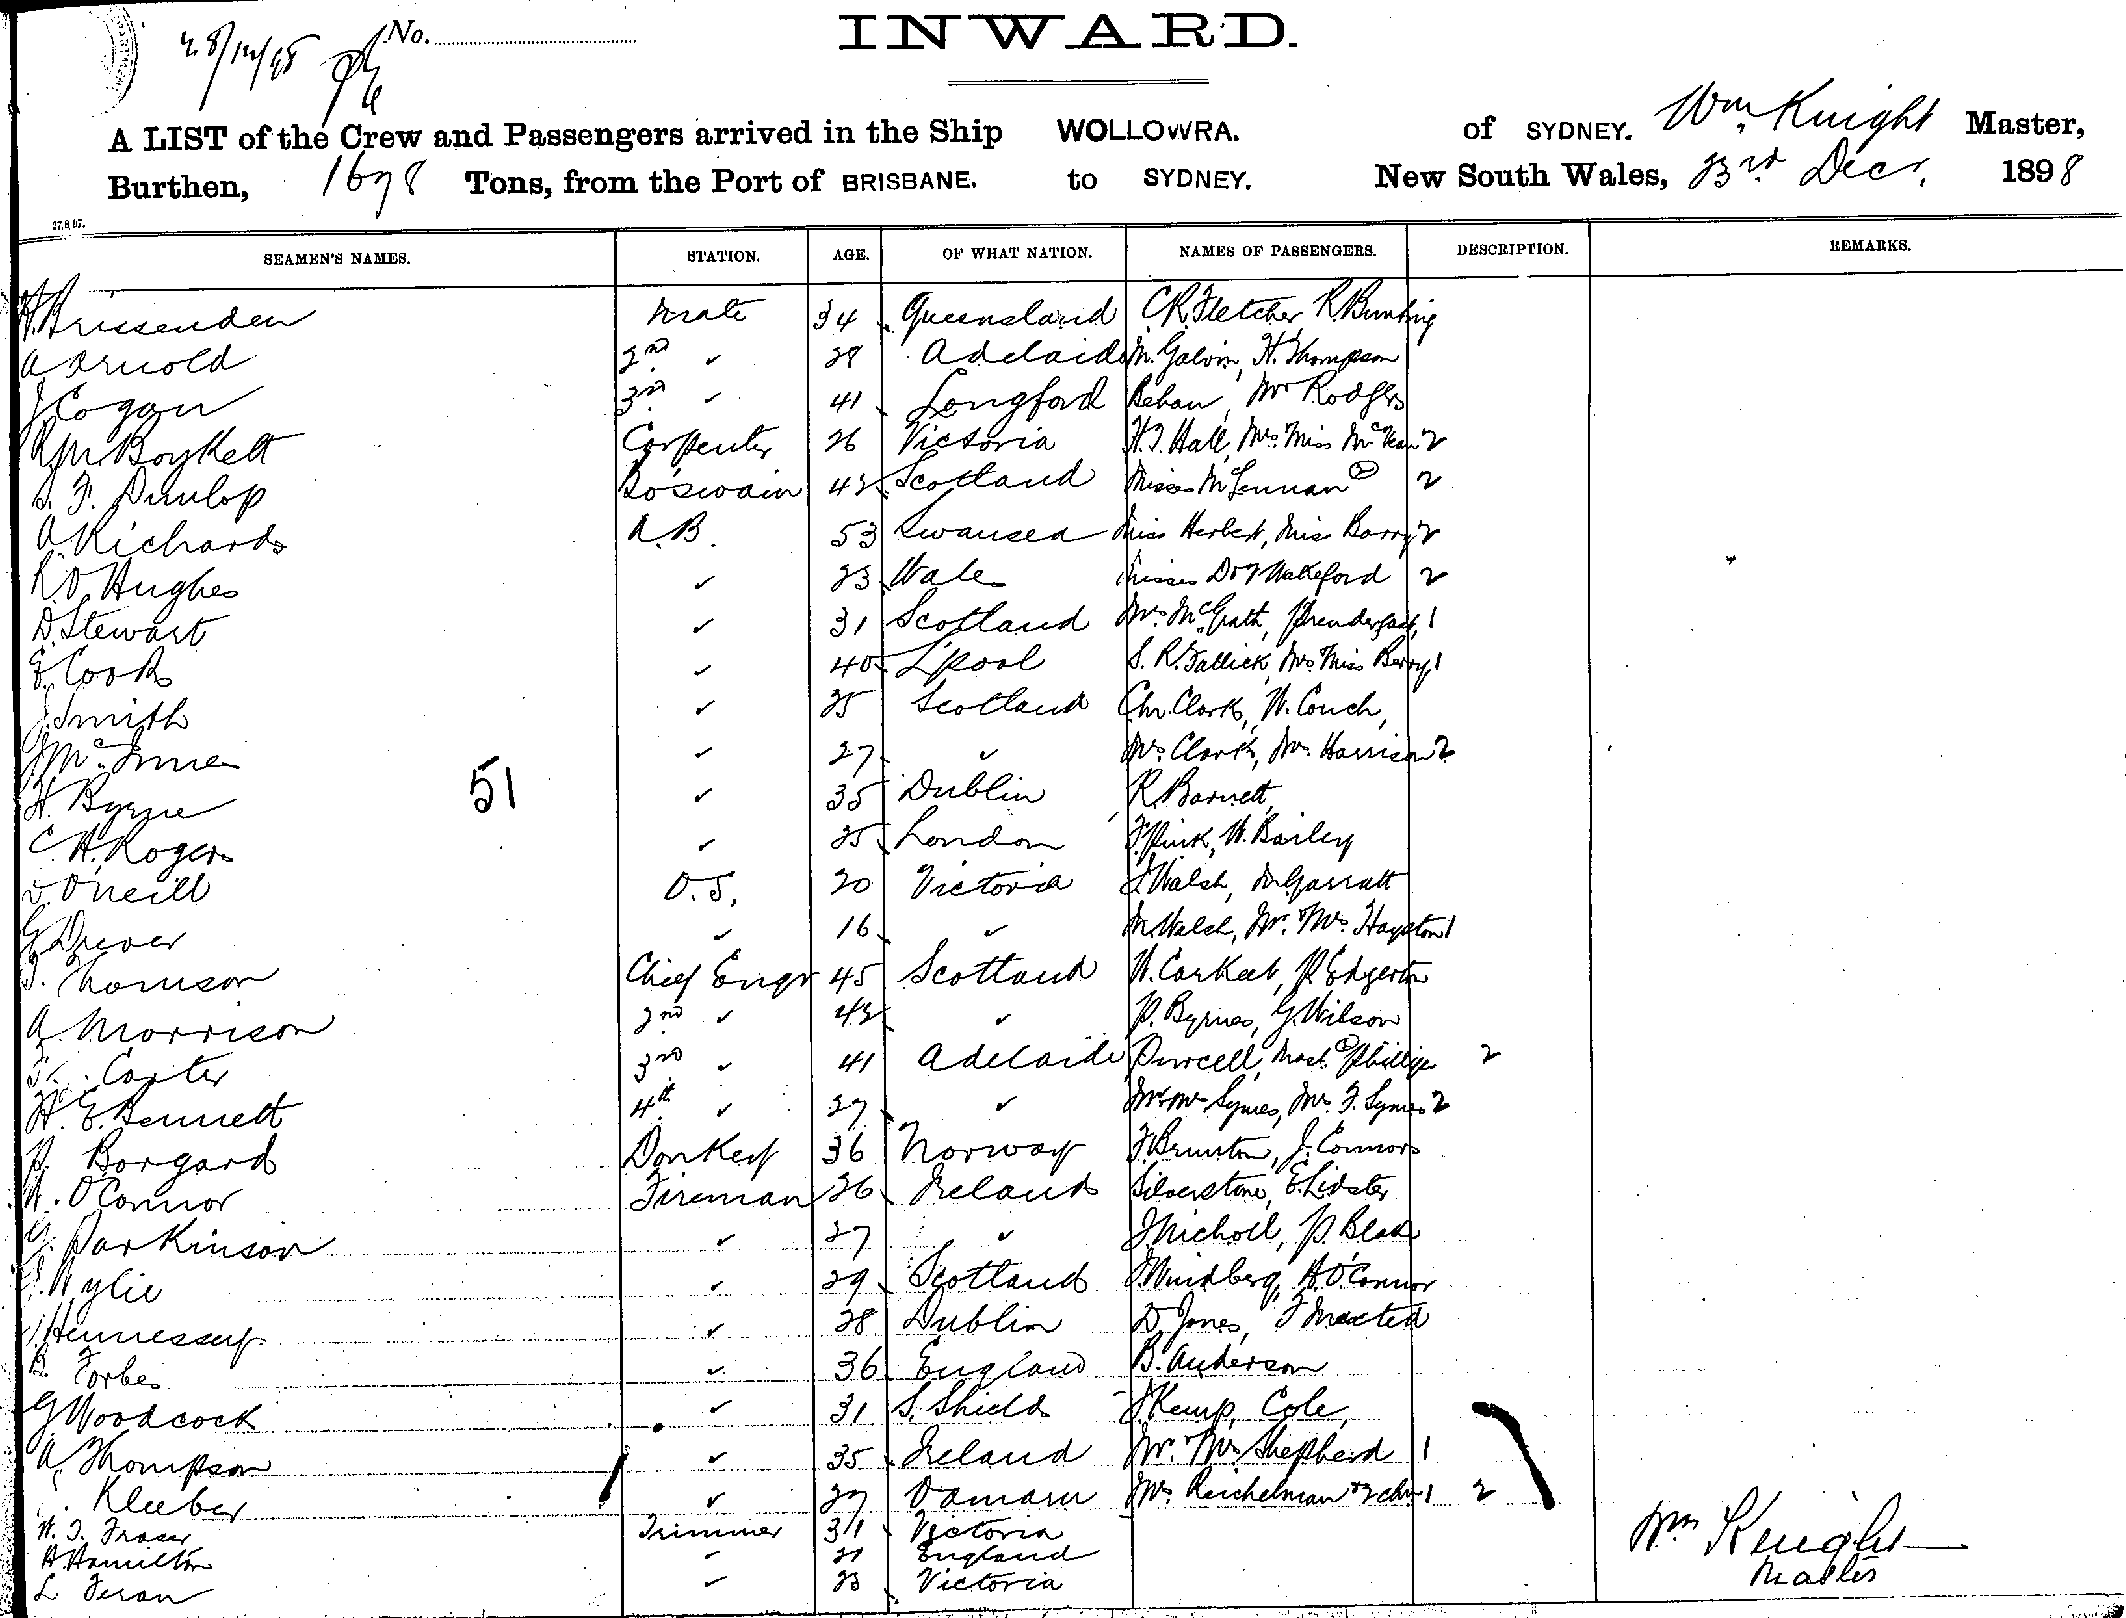 28/12/98 No.
INWARD.
A LIST of the Crew and Passengers arrived in the Ship WOLLOWRA. of SYDNEY. Wm. Knight Master,
Burthen, 1698 Tons, from the Port of BRISBANE. to SYDNEY. New South Wales, 23rd Decr. 1898
27.8.97.
SEAMEN'S NAMES. STATION. AGE. OF WHAT NATION. NAMES OF PASSENGERS. DESCRIPTION. REMARKS.
H Brissenden Mate 34 Queensland C.R. Fletcher, R. Bunting
A Arnold 2nd ✓ 28 Adelaide M. Galvin, H. Thompson
J Cogan 3rd ✓ 41 Longford Behan, Mr Rodgers
Boykett Carpenter 26 Victoria H.T. Hall, Mrs Miss 2
F. Dunlop Bo'swain 42 Scotland Misses McLennan 2 2
A. Richards A.B. 53 Swansea Miss Herbert, Miss Barry 2
R.O. Hughes ✓ 23 Wales Misses Wakeford 2
D. Stewart ✓ 31 Scotland Mrs McGrath, Prendergast, 1
E. Cook ✓ 40 L'pool S.R. Fallick, Mrs Miss Berry 1
J. Smith ✓ 25 Scotland Chr. Clark, W. Couch,
J McInnes ✓ 27 ✓ Mrs Clark, Mrs Harrison 2
H. Byrne 51 ✓ 35 Dublin R Barnett,
C.H. Rogers ✓ 25 London F. Pink, W. Bailey
D. O'Neill O.S. 20 Victoria J Walsh, M Garratt
G Drever ✓ 16 ✓ M Walsh, Mr Mrs Hayston 1
T. Thomson Chief Engr 45 Scotland W. Carkeet, P. Edgerton
A. Morrison 2nd ✓ 42 ✓ P. Byrnes, G. Wilson
Carter 3rd ✓ 41 Adelaide Purcell, Mast. Phillips 2
H. E. Bennett 4th ✓ 27 ✓ Mr Mrs Symes, Mrs F. Symes 2
P. Borgard Donkey 36 Norway F. Brunton, J. Connors
O'Connor Fireman 26 Ireland Silverstone, E. Lidster
G. Parkinson ✓ 27 ✓ J Nicholl, P. Blake
Wylie ✓ 29 Scotland Windberg, H. O'Connor
Hennessy ✓ 28 Dublin D. Jones, F Maxted
B. Forbes ✓ 36 England B. Anderson
G Woodcock ✓ 31 S. Shields J Kemp, Cole,
A. Thompson ✓ 35 Ireland Mr Mrs Shepherd 1
Kleeber ✓ 27 Oamaru Mrs Reichelman & 2 chn 1 2
W. T. Fraser Trimmer 31 Victoria
A Hamilton ✓ 21 England
L Feran ✓ 23 Victoria
Wm Knight
Master